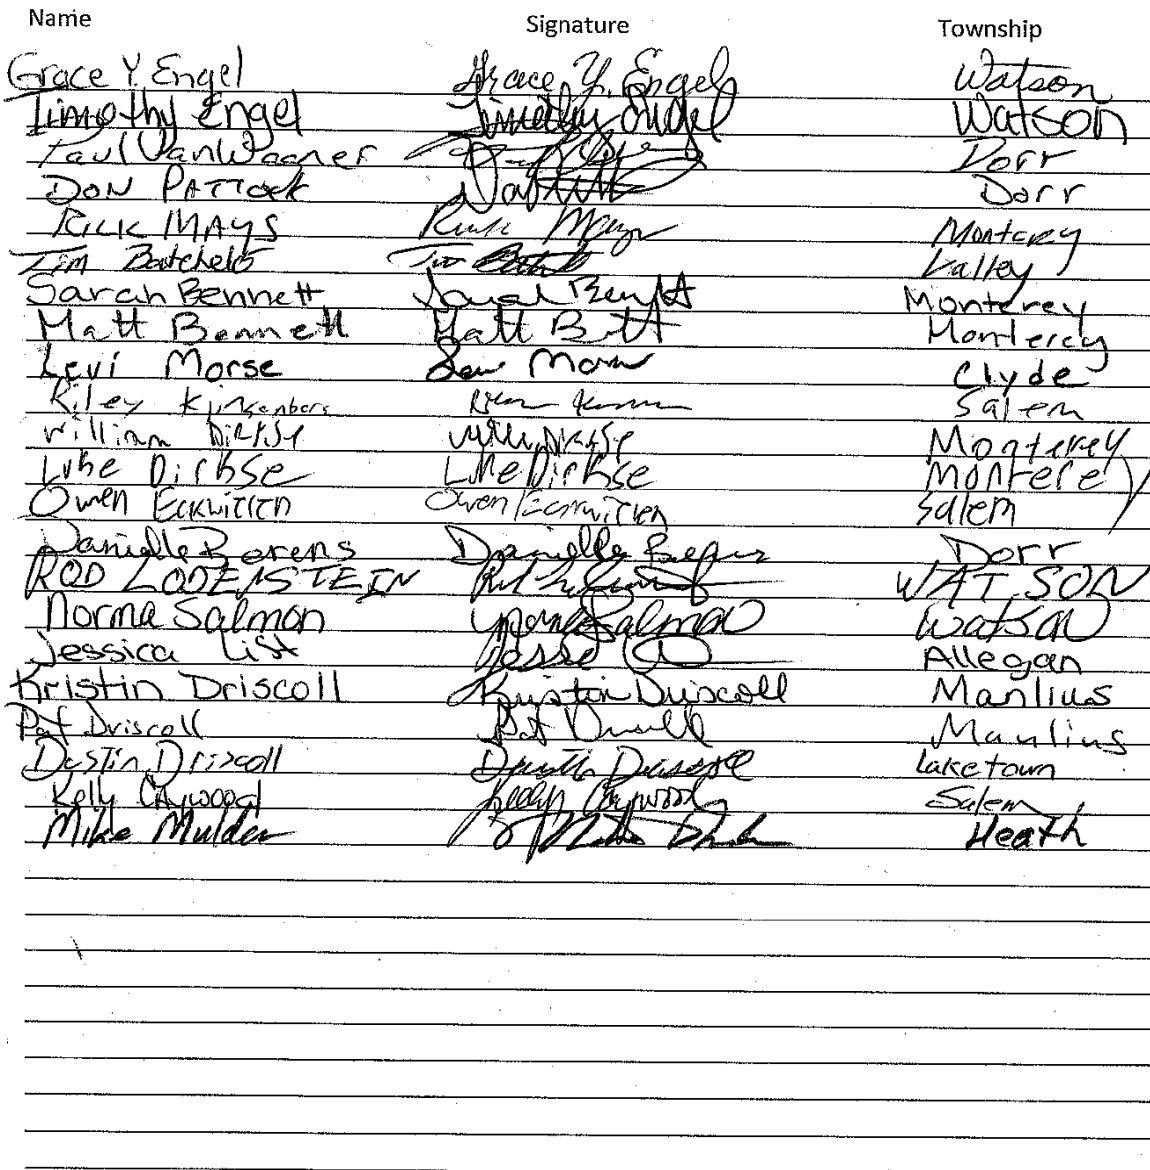 Name Signature Township
Grace Y. Engel Grace Y. Engel Watson
Timothy Engel Timothy Engel Watson
Paul VanWagner Dorr
DON PATTOCK Dorr
RICK MAYS Rick Mays Montery
Tim Batchelo Tim Valley
Sarah Bennett Sarah Monterey
Matt Bennett Matt Monterey
Levi Morse Clyde
Riley Salem
William DIRKSE DIRKSE Monterey
Luke Dirkse Luke Dirkse Monterey
Owen Owen Salem
Danielle Berens Danielle Dorr
ROD LODENSTEIN WATSON
Norma Salmon Norma Salmon Watson
Jessica List Allegan
Kristin Driscoll Kristin Driscoll Manlius
Pat Driscoll Pat Manlius
Dustin Driscoll Laketown
Kelly Caywood Kelly Caywood Salem
Mike Mulder Heath